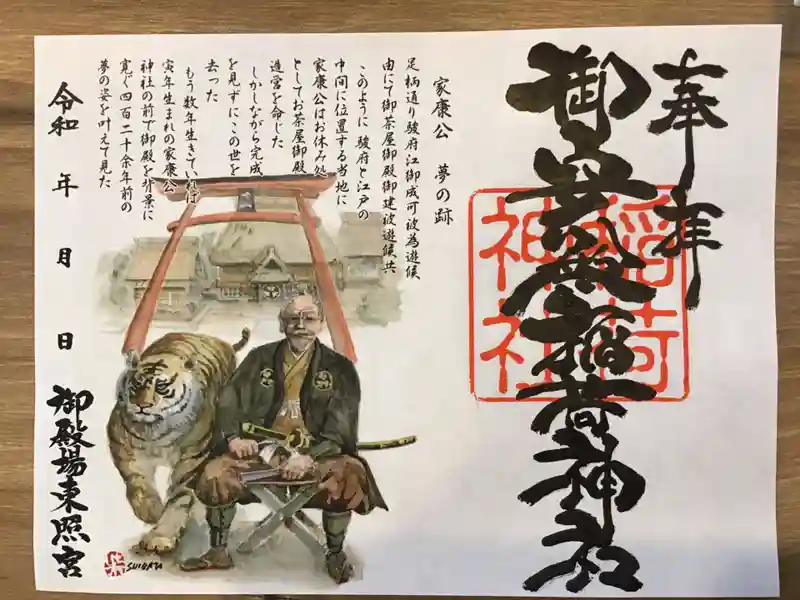 奉拝
御殿稲荷神社
稲荷
神社
家康公 夢の跡
足柄通り駿府江御成可被為遊候
由にて御茶屋御殿御建被遊候共
このように 駿府と江戸の
中間に位置する当地に
家康公はお休み処
としてお茶屋御殿
造営を命じた
しかしながら完成
を見ずにこの世を
去った
もう数年生きていれば
寅年生まれの家康公
神社の前で御殿を背景に
寛ぐ四百二十余年前の
夢の姿を叶えて見た
令和 年 月 日
御殿場東照宮